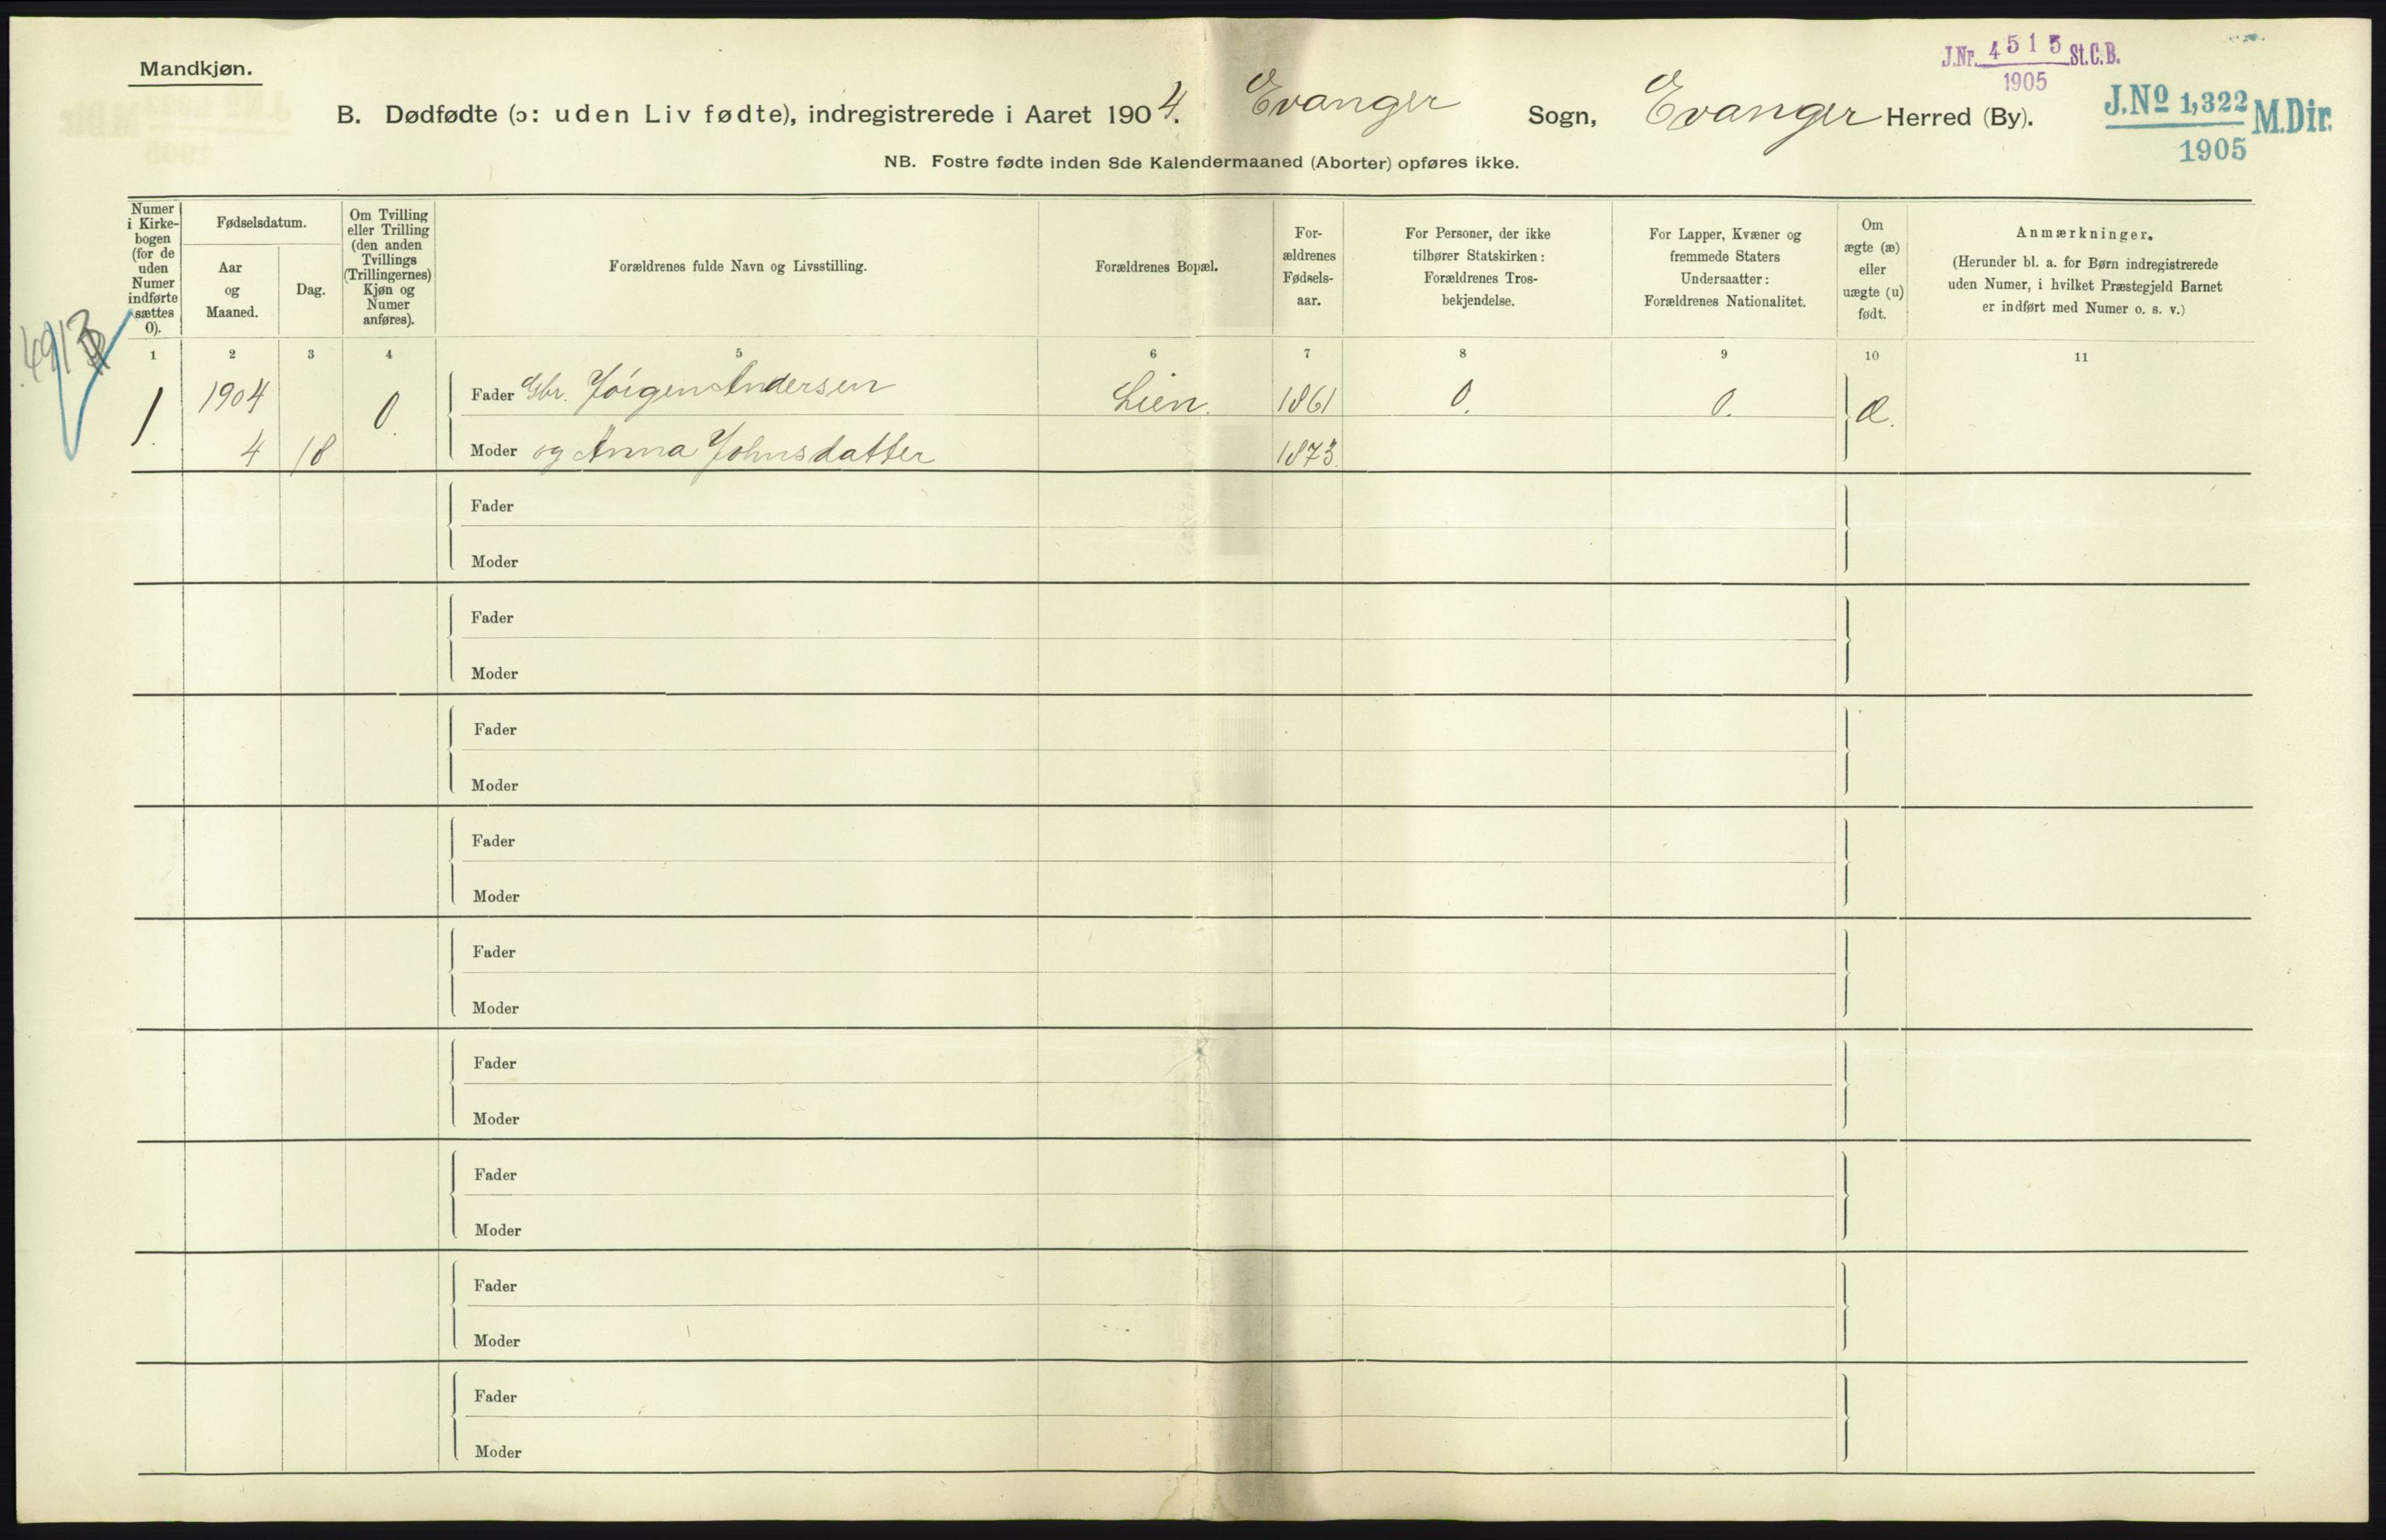 Mandkjøn.
J.Nr. 4515 St.C.B.
1905
B. Dødfødte (ɔ: uden Liv fødte), indregistrerede i Aaret 1904. Evanger Sogn, Evanger Herred (By).
J.Nº 1,322 M.Dir.
1905
NB. Fostre fødte inden 8de Kalendermaaned (Aborter) opføres ikke.
Numer
i Kirke-
bogen
(for de
uden
Numer
indførte
sættes
0).
Fødselsdatum.
Aar
og
Maaned.
Dag.
Om Tvilling
eller Trilling
(den anden
Tvillings
(Trillingernes)
Kjøn og
Numer
anføres).
Forældrenes fulde Navn og Livsstilling.
Forældrenes Bopæl.
For-
ældrenes
Fødsels-
aar.
For Personer, der ikke
tilhører Statskirken:
Forældrenes Tros-
bekjendelse.
For Lapper, Kvæner og
fremmede Staters
Undersaatter:
Forældrenes Nationalitet.
Om
ægte (æ)
eller
uægte (u)
født.
Anmærkninger.
(Herunder bl. a. for Børn indregistrerede
uden Numer, i hvilket Præstegjeld Barnet
er indført med Numer o. s. v.)
1 2 3 4 5 6 7 8 9 10 11
1. 1904 0. Fader Gbr. Jörgen Andersen Lien. 1861 0. 0. Æ.
4 18 Moder og Anna Johnsdatter 1873.
Fader
Moder
Fader
Moder
Fader
Moder
Fader
Moder
Fader
Moder
Fader
Moder
Fader
Moder
Fader
Moder
Fader
Moder